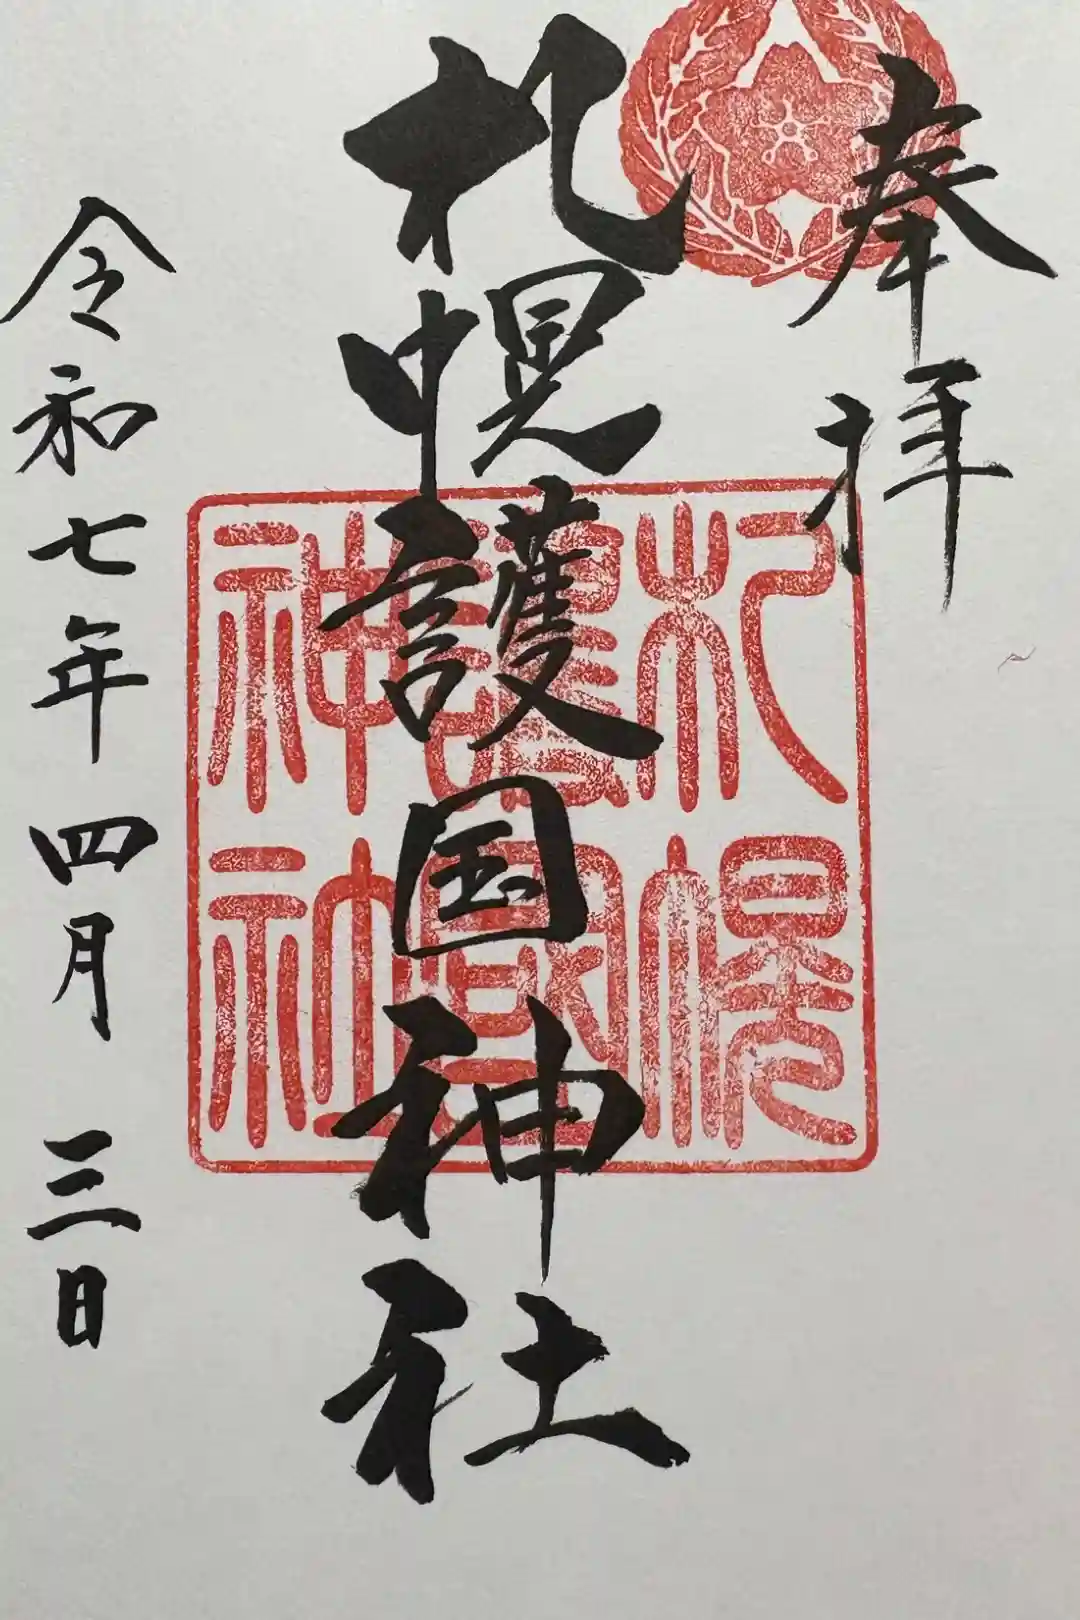 奉拝
札幌護国神社
令和七年四月三日
札幌
護國
神社